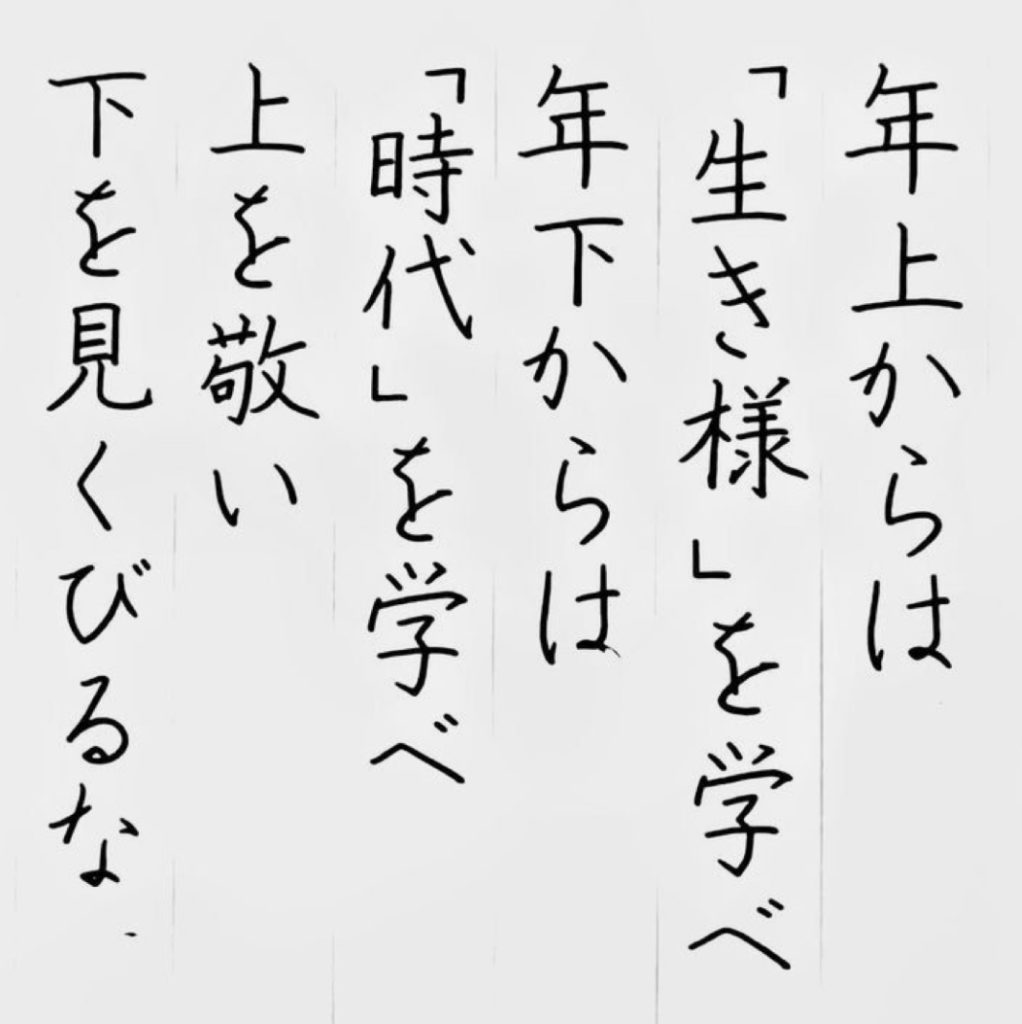 年上からは
「生き様」を学べ
年下からは
「時代」を学べ
上を敬い
下を見くびるな